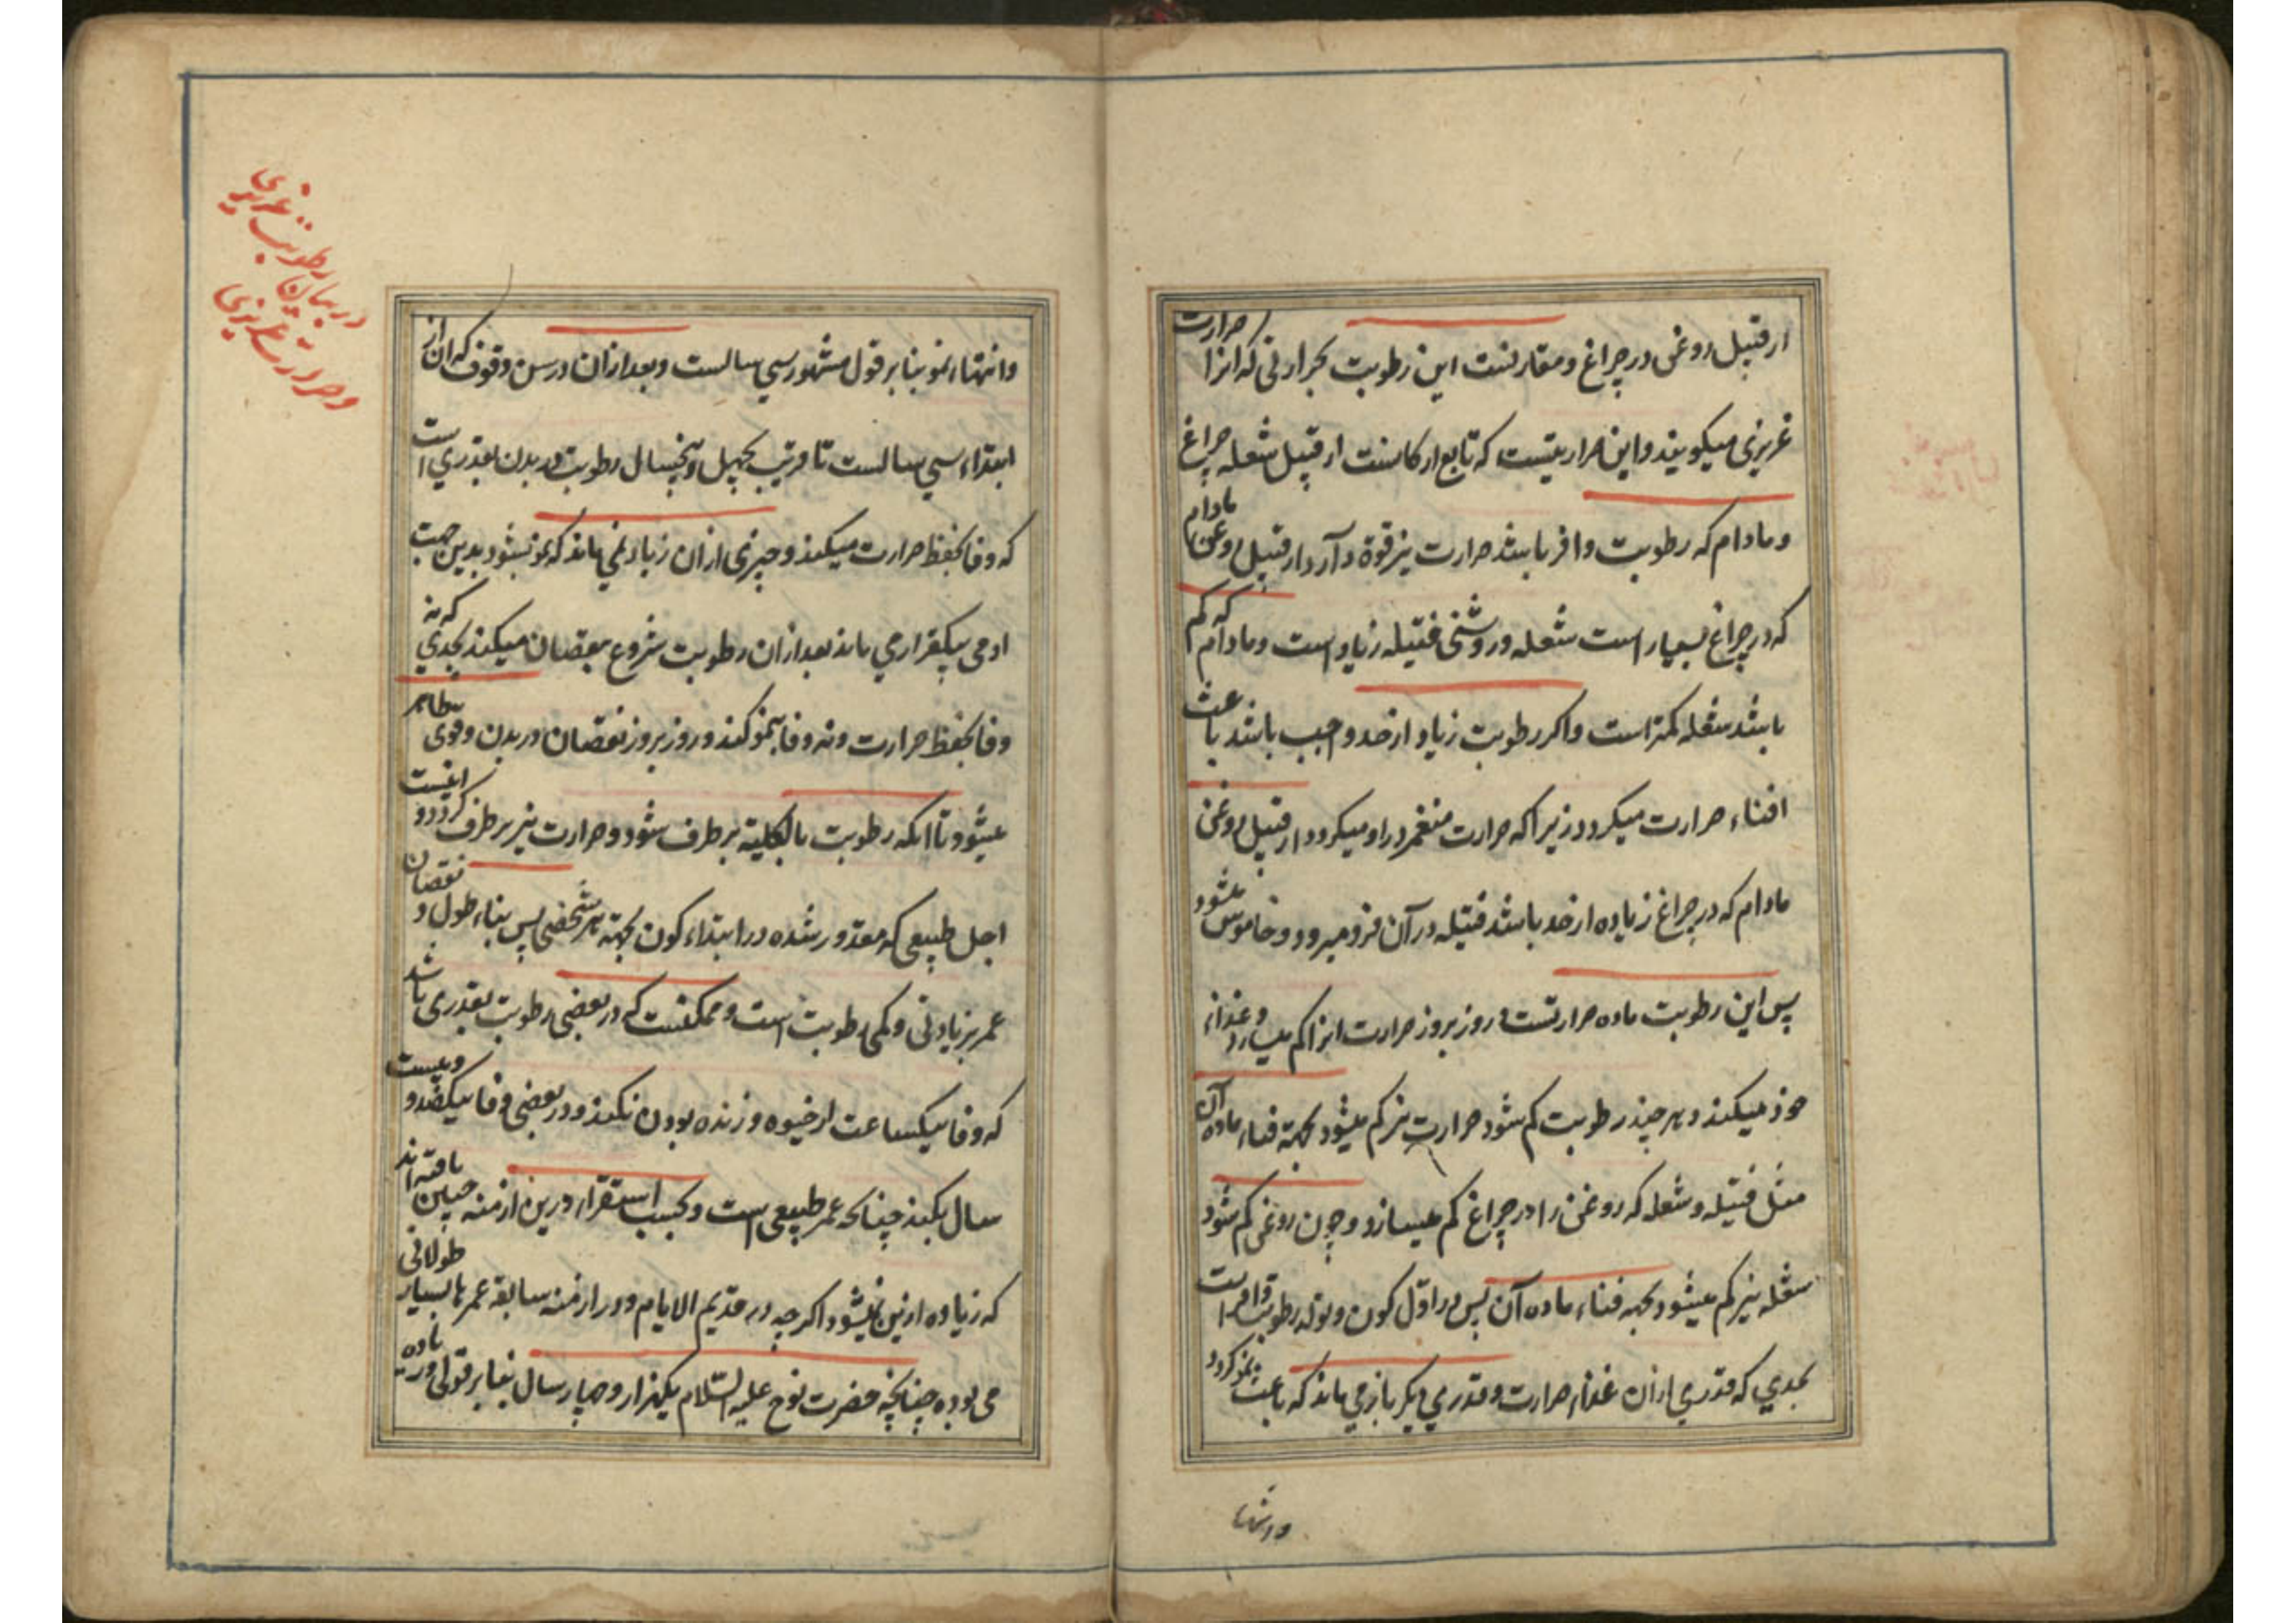 از قبیل روغن در چراغ و مقارنست این رطوبت بحرارتی که انرا حرارت
غریزی میکویند و این حرارتیست که تابع ارکانست از قبیل شعله چراغ
و مادام که رطوبت وافر باشد حرارت نیز قوة دارد از قبیل روغن مادام
که در چراغ بسیار است شعله و روشنی فتیله زیاد است و مادام که کم
باشد شعله کمتر است و اکر رطوبت زیاد از حد واجب باشد باعث
افناء حرارت میکردد زیرا که حرارت منغمر در او میکردد از قبیل روغن
مادام که در چراغ زیاده از حد باشد فتیله در آن فرو میرود و خاموش میشود
پس این رطوبت ماده حرارتست و روز بروز حرارت انرا کم میسازد و غذاء
خود میکند و هر چند رطوبت کم شود حرارت نیز کم میشود بجهة فناء ماده آن
مثل فتیله و شعله که روغن را در چراغ کم میسازد و چون روغن کم شود
شعله نیز کم میشود بجهة فناء ماده آن پس در اوّل کون و تولد رطوبت وافر است
بحدی که قدری ازان غذاء حرارت و قدری دیکر باز می ماند که باعث نمو کردد
و انتهاء
در بیان رطوبت غریزی
و حرارت غریزی
و انتهاء نمو بنا بر قول مشهور سی سالست و بعد ازان در سن وقوف که ان از
ابتداء سی سالست تا قریب بچهل و پنجسال رطوبت در بدن بقدری است
که وفا بحفظ حرارت میکند و چیزی ازان زیاد نمی ماند که نمو بشود بدین جهت
ادمی بیکقرار می ماند بعد ازان رطوبت شروع بنقصان میکند بحدی که نه
وفا بحفظ حرارت و نه وفا بنمو کند و روز بروز نقصان در بدن و قوی ظاهر
میشود تا انکه رطوبت بالکلیة بر طرف شود و حرارت نیز بر طرف کردد و اینست
اجل طبیعی که مقدور شده در ابتداء کون بجهة هر شخصی پس بناء طول و نقصان
عمر بزیادتی و کمی رطوبت است و ممکنست که در بعضی رطوبت بقدری باشد
که وفا بیکساعت از حیوه و زنده بودن نکند و در بعضی وفا بیکصد و بیست
سال بکند چنانکه عمر طبیعی است و بحسب استقرار درین ازمنه چنین یافته اند
که زیاده ازین نمیشود اکر چه در قدیم الایام و در ازمنه سابقة عمرها بسیار طولانی
می بوده چنانچه حضرت نوح علیه السّلام یکهزار و چهار سال بنا بر قولی